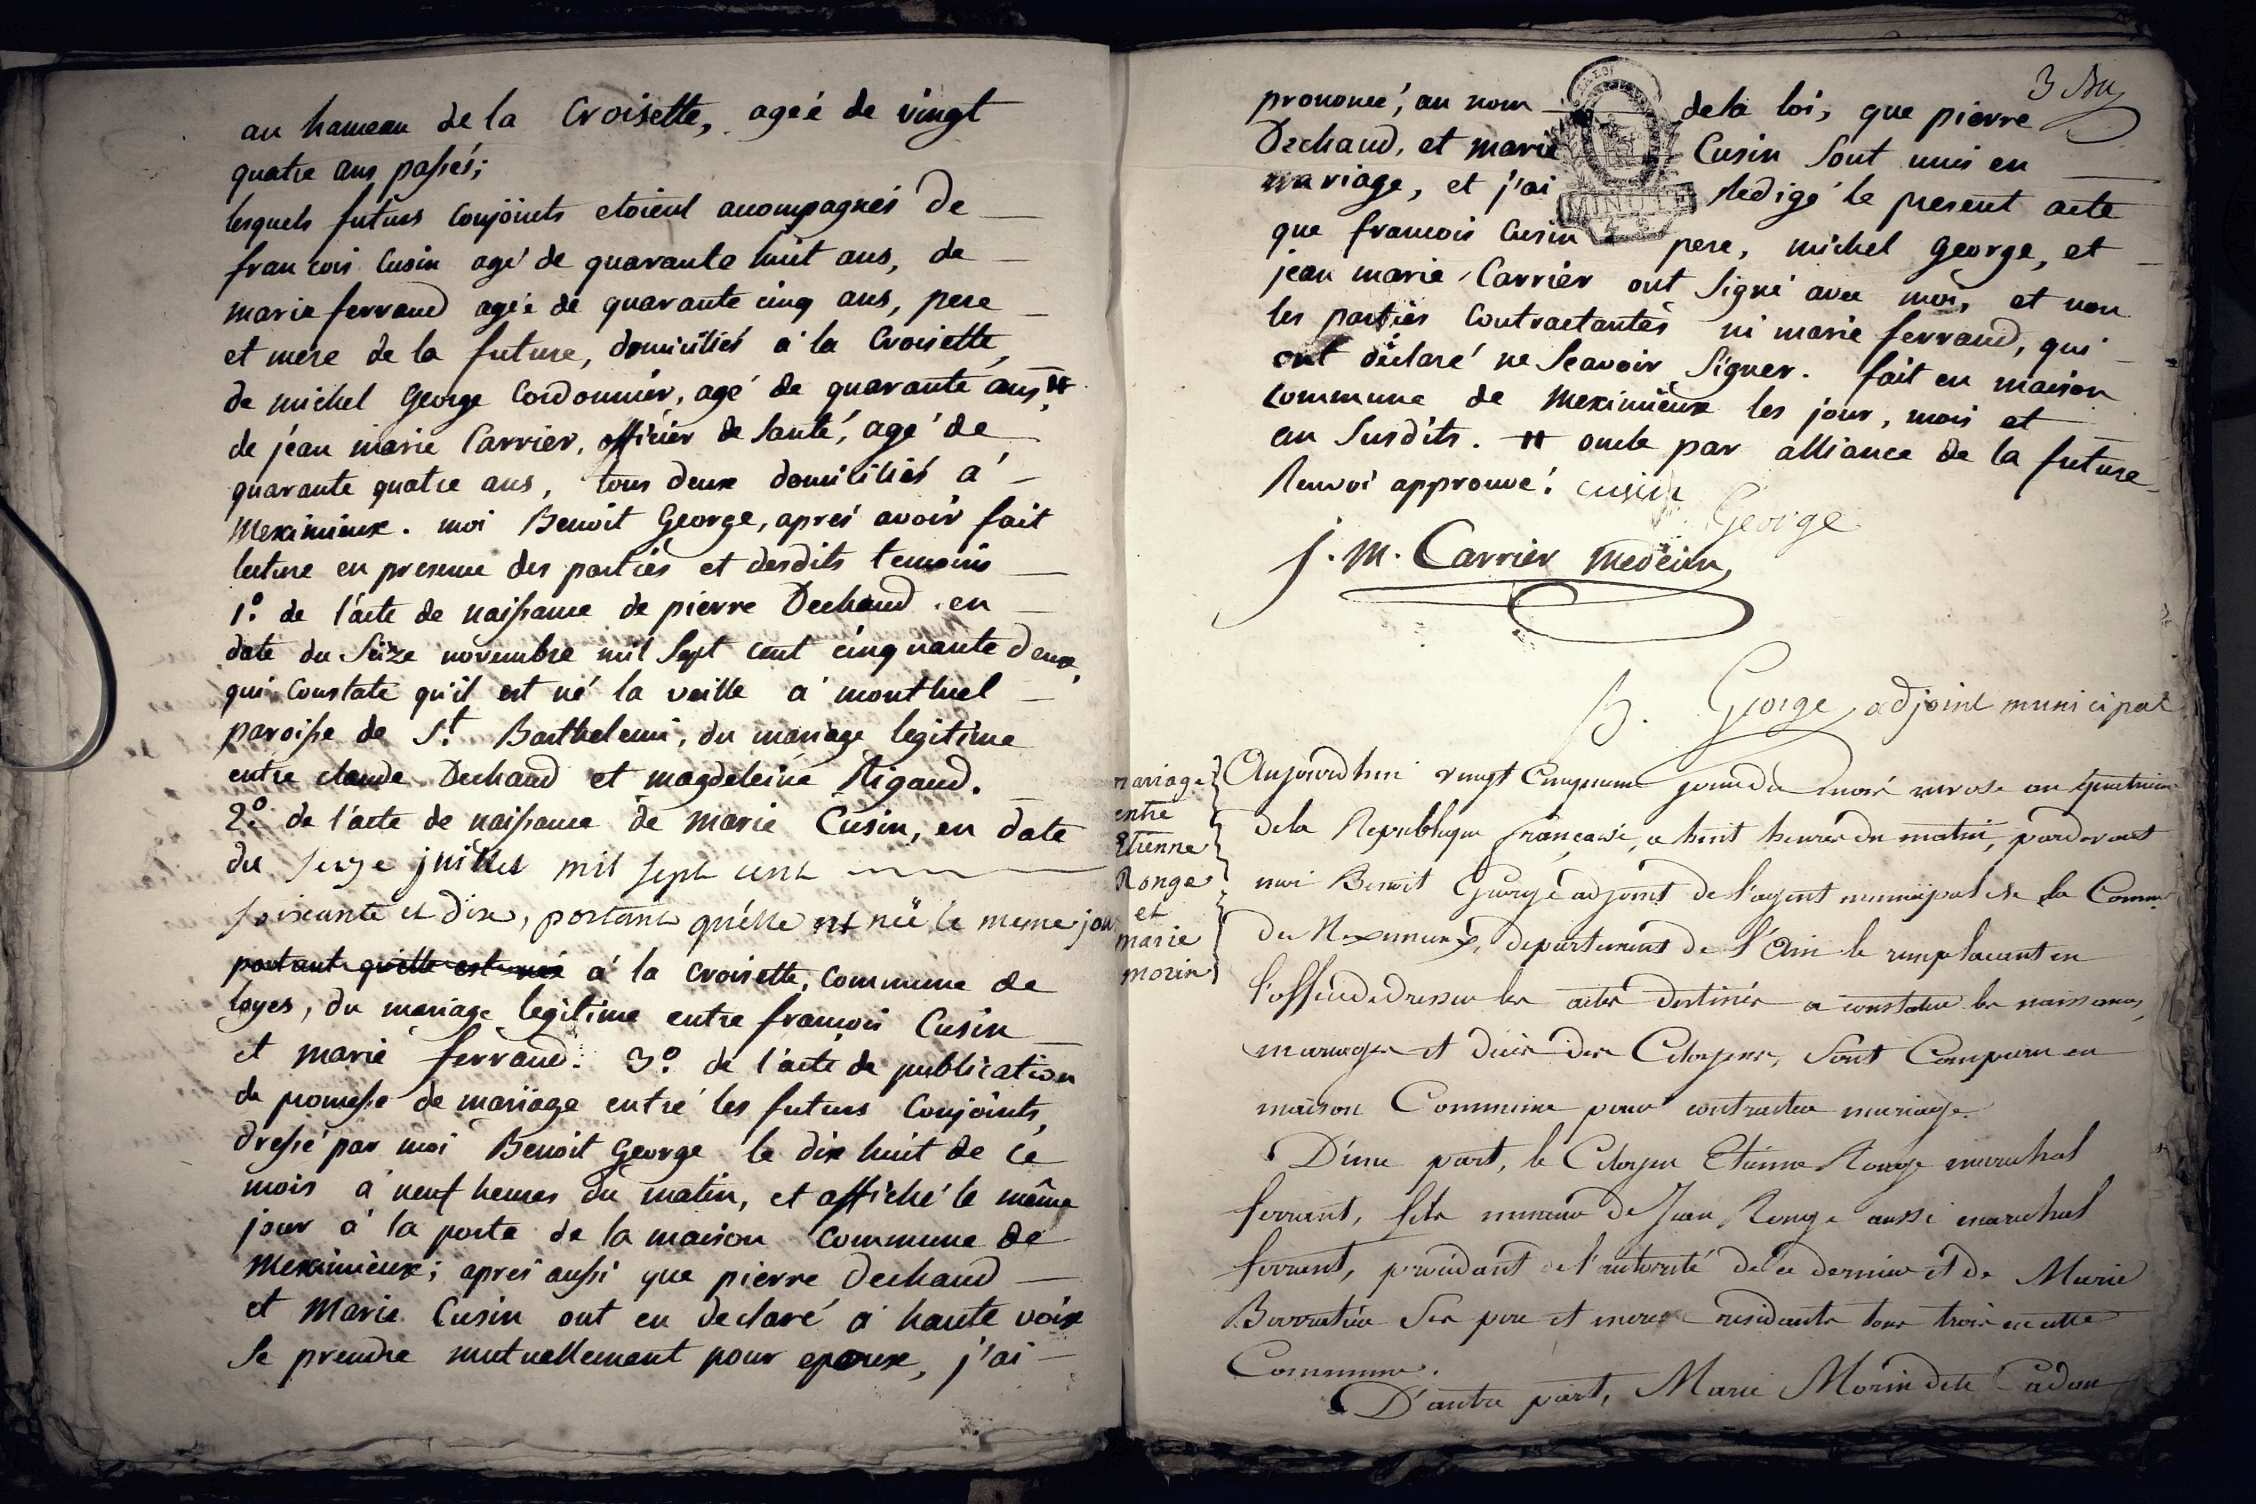 au hameau de la Croisette, ageé de vingt
quatre ans passés;
lesquels futurs conjoints etoient acompagnés de
francois Cusin agé de quarante huit ans, de
marie ferraud ageé de quarante cinq ans, pere
et mere de la future, domiciliés à la Croisette,
de michel George Cordonnier, agé de quarante ans, #
de jean marie Carrier, officier de Santé, agé de
quarante quatre ans, tous deux domiciliés a
Meximieux. moi Benoit George, aprés avoir fait
lecture en presence des parties et desdits temoins
1.º de l'acte de naissance de pierre Dechaud en
date du Seize novembre mil Sept cent cinquante deux,
qui constate qu'il est né la veille a montluel
paroisse de St. Barthelemi, du mariage legitime
entre claude Dechaud et magdeleine Rigaud.
2.º de l'acte de naissance de Marie Cusin, en date
du seize juillet mil sept cent
soixante et dix, portant quelle est néé le meme jou
portant quelle est neé à la Croisette, commune de
loyes, du mariage legitime entre francois Cusin
et Marie ferraud. 3.º de l'acte de publication
de promesse de mariage entre les futurs Conjoints,
dressé par moi Benoit George le dix huit de ce
mois a neuf heures du matin, et affiché le même
jour à la porte de la maison commune de
Meximieux; aprés aussi que pierre Dechaud
et Marie Cusin ont eu declaré à haute voix
Se prendre mutuellement pour epoux, j'ai
3
prononcé, au nom dela loi, que pierre
Dechaud, et marie Cusin Sont unis en
mariage, et j'ai Redigé le present acte
MINUTE
que francois Cusin pere, michel George, et
jean marie Carrier ont Signé avec moi, et non
les parties Contractantes ni marie ferraud, qui
ont déclaré ne Scavoir Signer. fait en maison
commune de Meximieux les jour, mois et
an Susdits. # oncle par alliance de la future
Renvoi approuvé. cusin
George
J. M. Carrier Medecin
B. George adjoint municipal
mariage
entre
Etienne
Ronge
et
marie
morin
Aujourdhui vingt Cinquieme jour du mois nivose an quatrieme
dela Republique française, a huit heures du matin, pardevant
moi Benoit George adjoint de l'agent municipal de la Comm.
de Meximieux, departement de l'Ain le remplacant en
l'office de dresser les actes destinés a constater les naissances,
mariages et deces des Citoyens, Sont Comparu en
maison Commune pour contracter mariage.
D'une part, le Citoyen Etienne Ronge marechal
ferrant, fils mineur de Jean Ronge aussi marechal
ferrant, procedant de l'autorité de ce dernier et de Marie
Ses pere et mere residants tous trois en cette
Commune.
D'autre part, Marie Morin dite Cadou